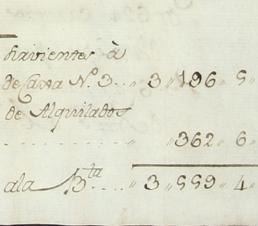 à
de Casa N.º 3.. 3 " 196 " 5 "
de Alquilados
........ " 362 " 6 "
ala .... " 3 " 559 " 4 "